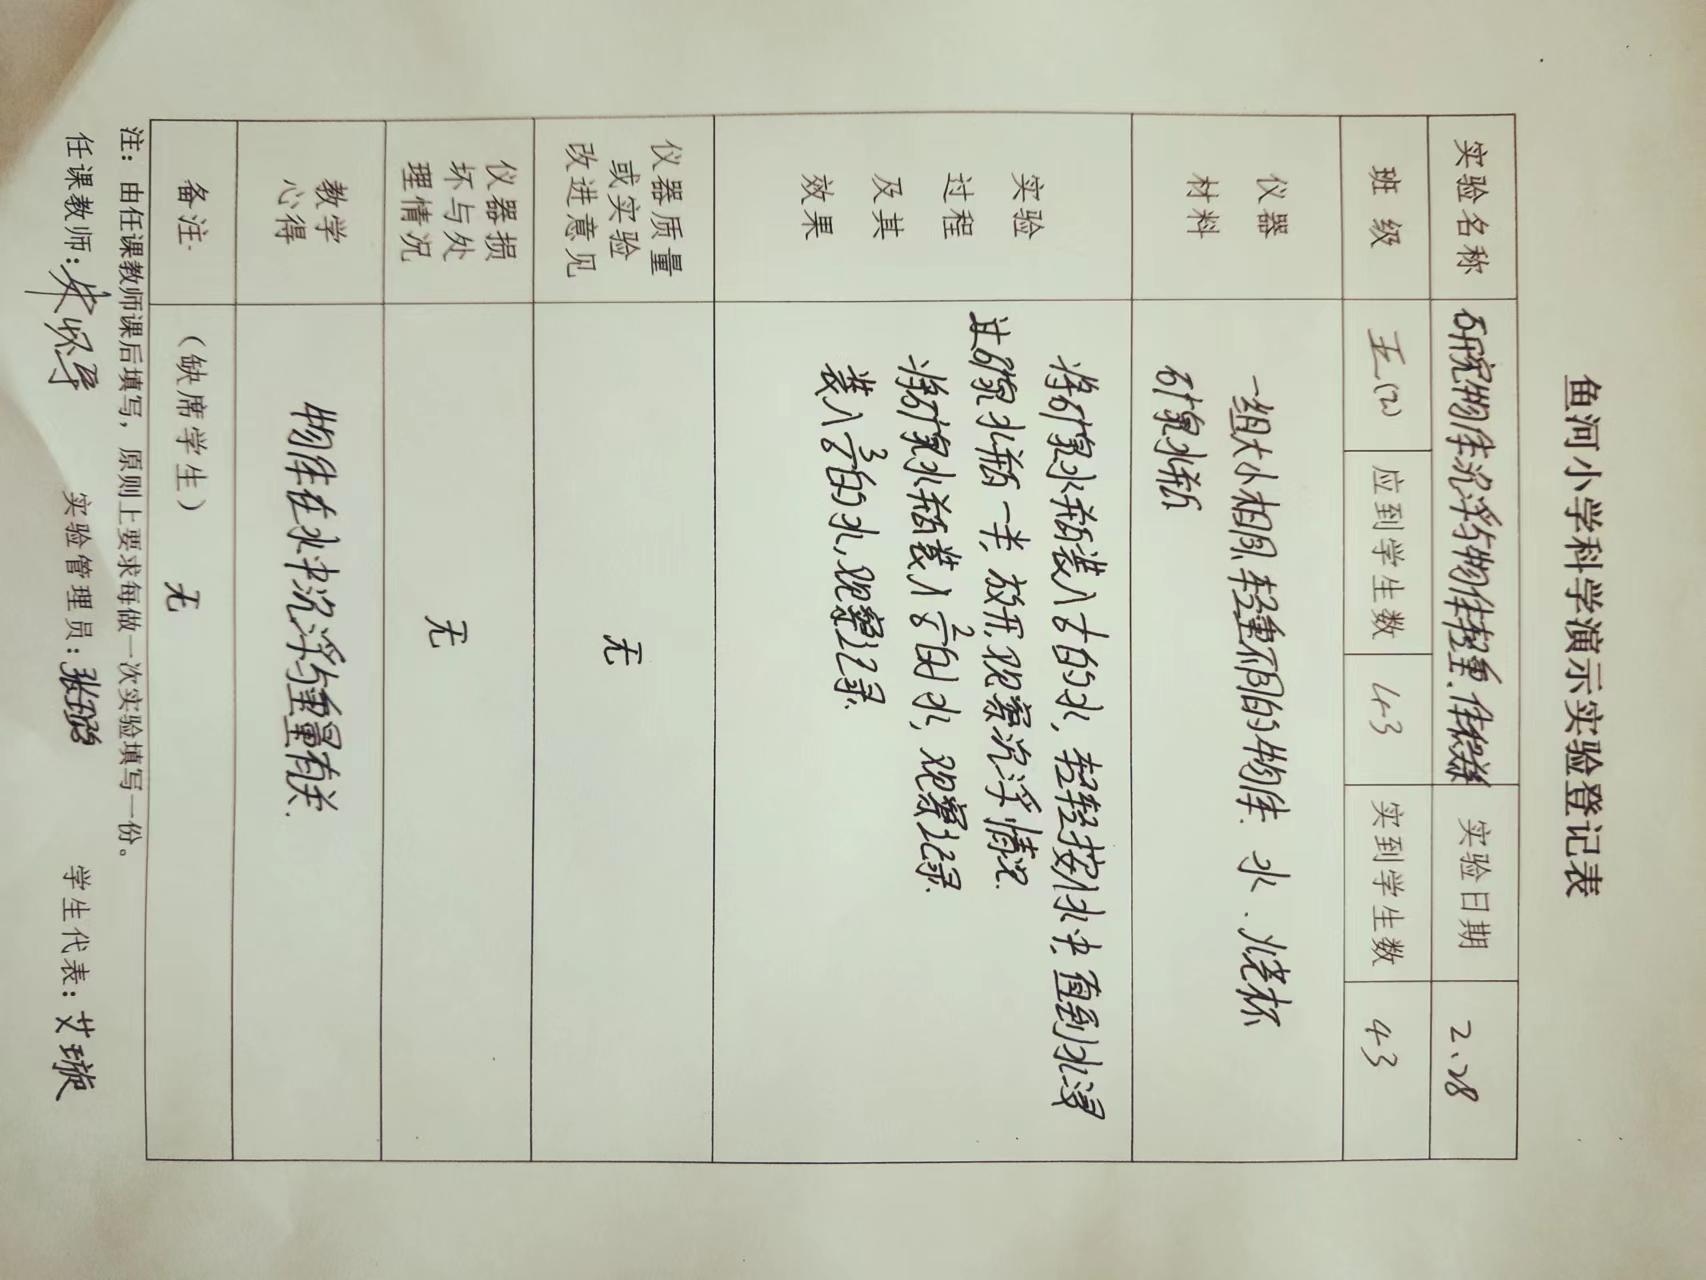 鱼河小学科学演示实验登记表
实验名称 研究物体沉浮与物体轻重、体积关系 实验日期 2.28
班 级 五(2) 应到学生数 43 实到学生数 43
仪器
材料
一组大小相同,轻重不同的物体、水、烧杯
矿泉水瓶
实验
过程
及其
效果
将矿泉水瓶装入 的水,轻轻按入水中,直到水浸
过矿泉水瓶一半,放开,观察沉浮情况.
将矿泉水瓶装入 的水,观察记录.
装入 的水,观察记录.
仪器质量
或实验
改进意见
无
仪器损
坏与处
理情况
无
教学
心得
物体在水中沉浮与重量有关.
备注: (缺席学生) 无
注:由任课教师课后填写,原则上要求每做一次实验填写一份。
任课教师: 实验管理员:张 学生代表:艾璇